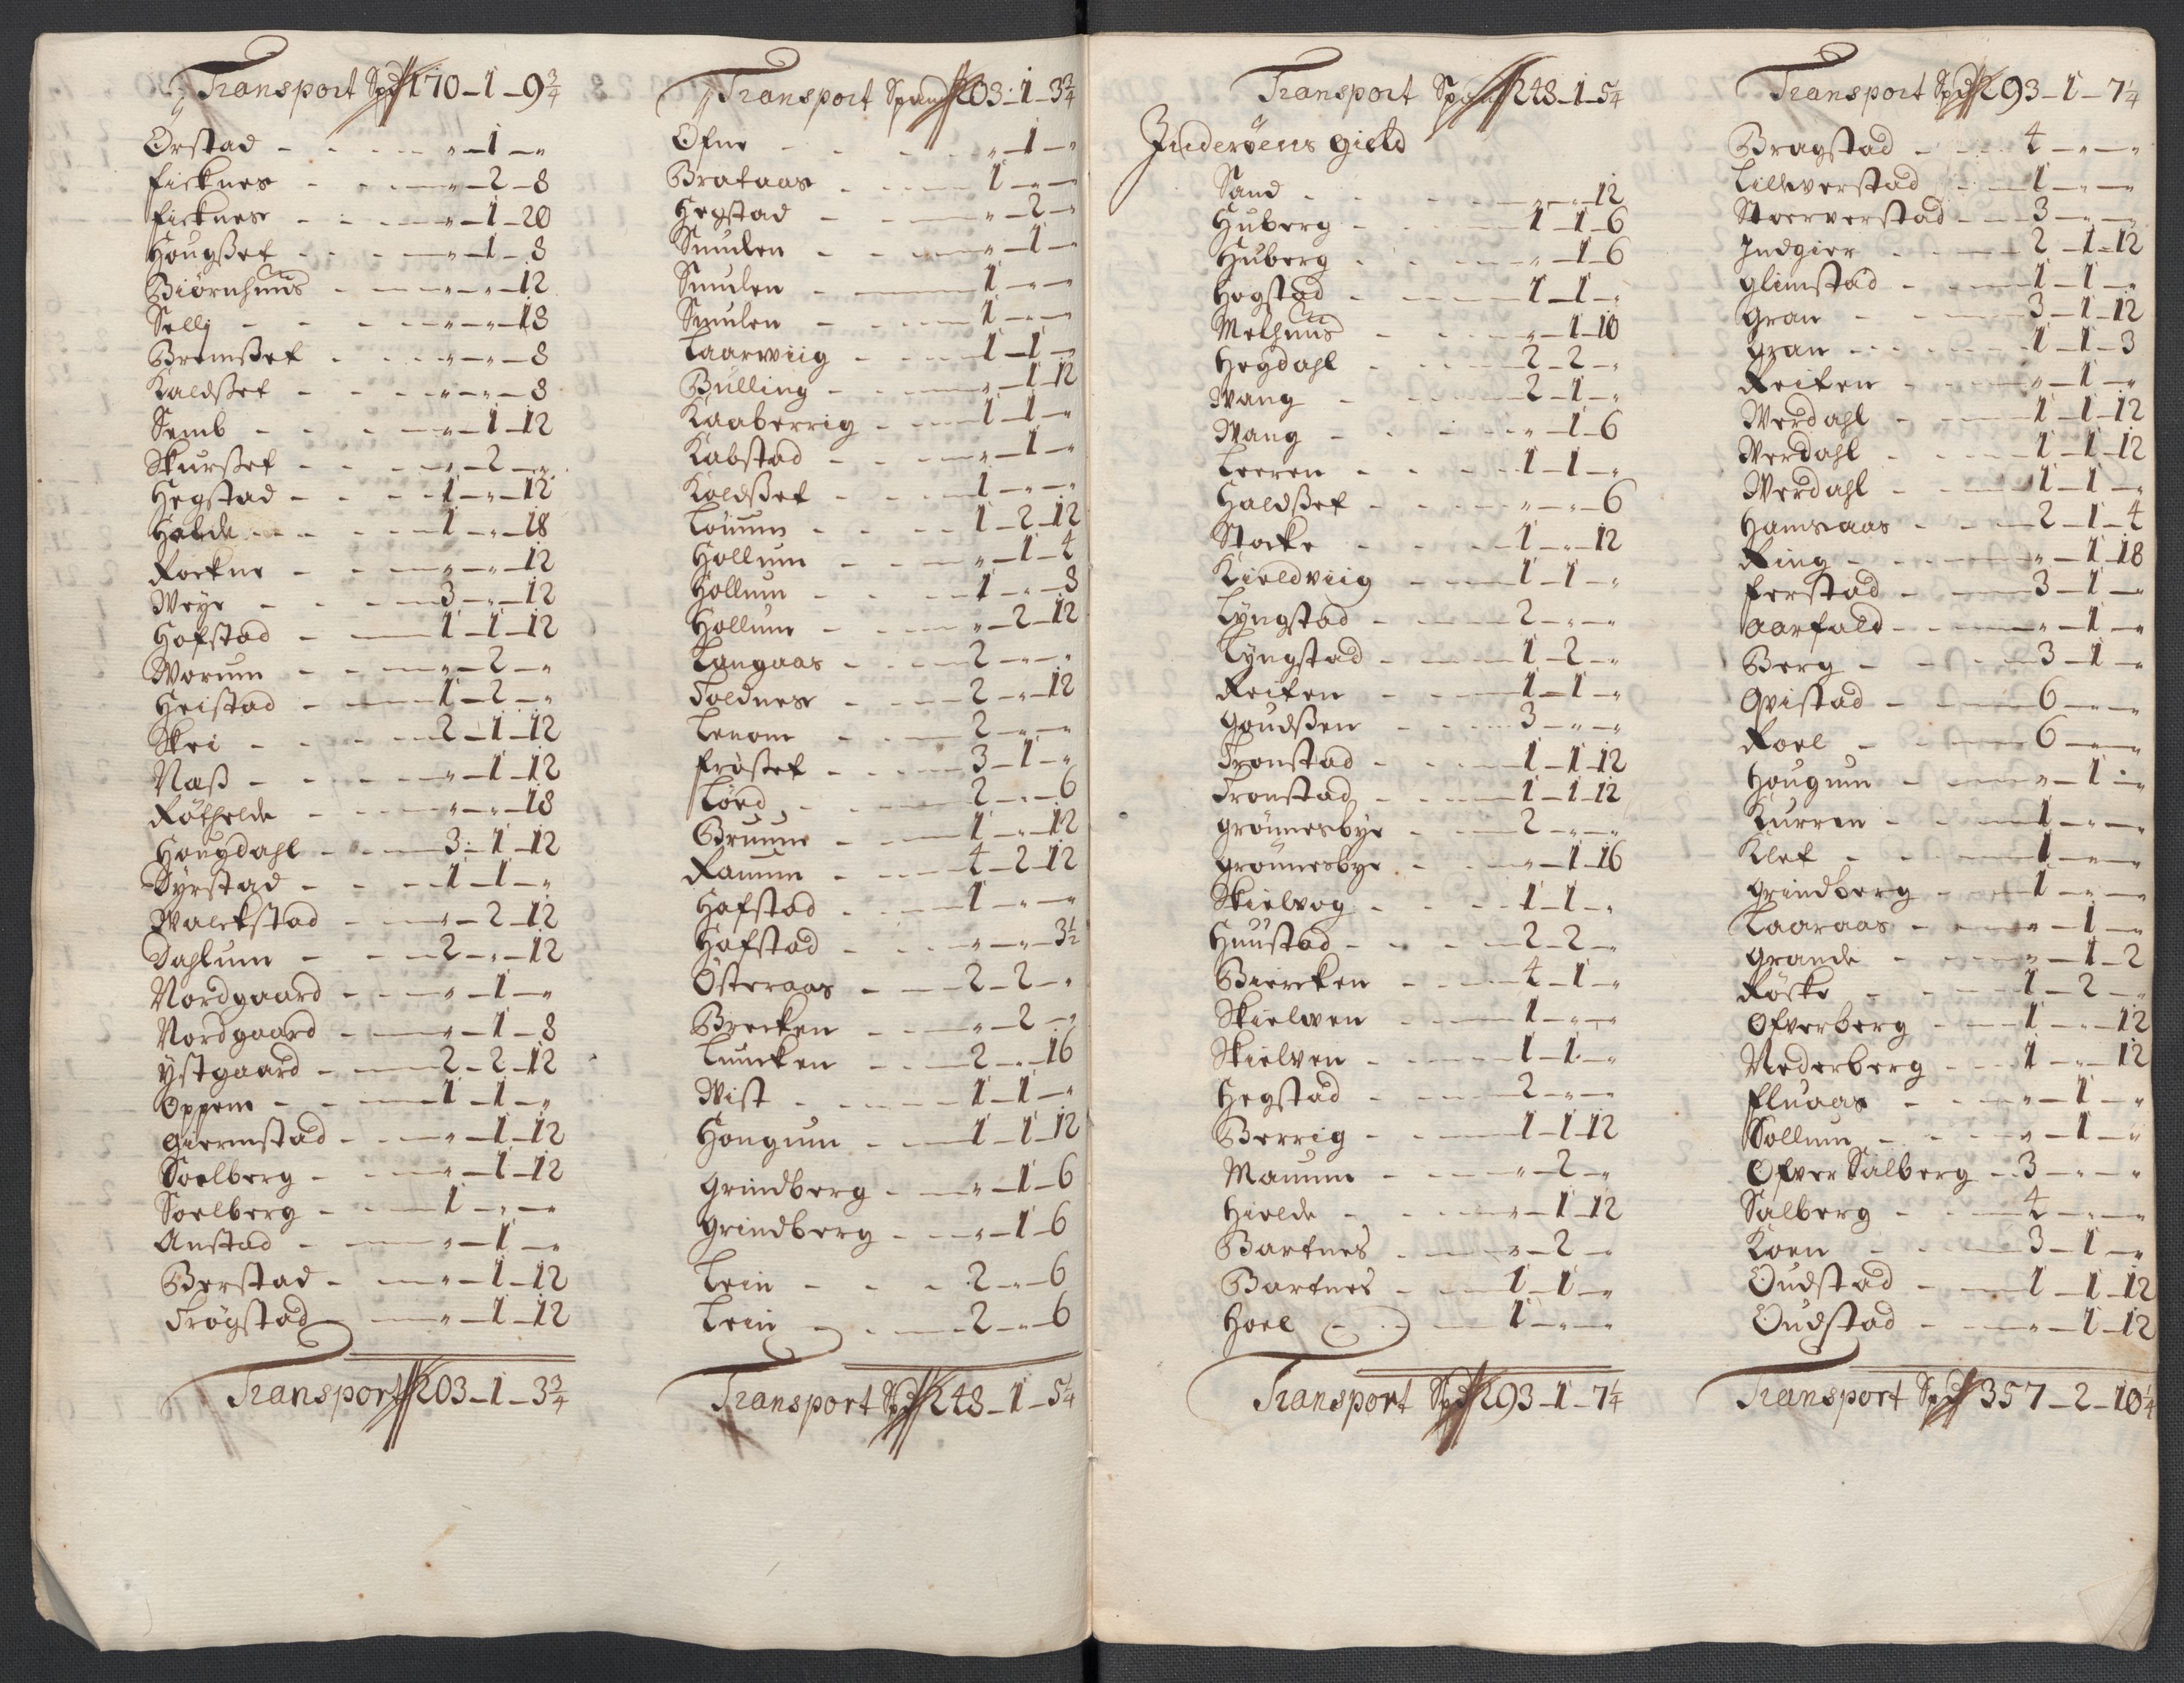 Transport Spd 170-1-9¾
Ørstad - - - - „-1-„
Ficknes - - - - „-2-8
Ficknes - - - - „-1-20
Hougsset - - - - „-1-8
Biørnhuus - - - „-„-12
Selli - - - - „-„-18
Bremsset - - - „-„-8
Kaldsset - - - „-„-8
Semb - - - - „-1-12
Skursset - - - „-2-„
Hegstad - - - 1-„-12
Halde - - - 1-„-18
Rockne - - - „-„-12
Weye - - - 3-„-12
Hofstad - - 1-1-12
Worum - - - „-2-„
Heistad - - 1-2-„
Skei - - - 2-1-12
Næss - - - „-1-12
Røthelde - - - „-„-18
Hougdahl - - 3-1-12
Dyrstad - - - 1-1-„
Walckstad - - „-2-12
Dahlum - - 2-„-12
Nordgaard - - „-1-„
Nordgaard - - „-1-8
Ystgaard - - 2-2-12
Oppem - - 1-1-„
Giermstad - - „-1-12
Soelberg - - „-1-12
Soelberg - - 1-„-„
Anstad - - „-1-„
Berstad - - „-1-12
Trøgstad - „-1-12
Transport 203-1-3¾
Transport Span 203-1-3¾
Ofne - - - - „-1-„
Brataas - - - 1-„-„
Hegstad - - - „-2-„
Smulen - - - „-1-„
Smulen - - - 1-„-„
Smulen - - - 1-„-„
Laarwiig - - - 1-1-„
Bulling - - - „-1-12
Kaaberrig - - 1-1-„
Kabstad - - - „-1-„
Koldsset - - - 1-„-„
Louum - - - 1-2-12
Hollum - - - „-1-4
Hollum - - - 1-„-8
Hollum - - - „-2-12
Langaas - - - 2-„-„
Toldnes - - - 2-„-12
Lenom - - - 2-„-„
Frøsset - - - 3-1-„
Lørd - - - 2-„-6
Bruum - - - 1-„-12
Ramum - - - 4-2-12
Hafstad - - - 1-„-„
Hafstad - - - „-„-3½
Østeraas - - 2-2-„
Brecken - - - „-2-„
Luncken - - - 2-„-16
Wist - - - 1-1-„
Hougum - - 1-1-12
Grindberg - - „-1-6
Grindberg - - „-1-6
Lein - - - 2-„-6
Lein - - - 2-„-6
Transport Spd 248-1-5¼
Transport Span 248-1-5¼
Inderøens Gield
Sand - - - - „-„-12
Huberg - - - 1-1-6
Huberg - - - „-1-6
Hogstad - - - 1-1-„
Melhuus - - - „-1-10
Hegdahl - - - 2-2-„
Wang - - - 2-1-„
Wang - - - „-1-6
Leeren - - - 1-1-„
Haldsset - - - „-„-6
Stocke - - - 1-„-12
Kieldviig - - 1-1-„
Lyngstad - - 2-„-„
Lyngstad - - 1-2-„
Reiten - - - 1-1-„
Goudssen - - - 3-„-„
Tronstad - - 1-1-12
Tronstad - - 1-1-12
Grønnesbye - - 2-„-„
Grønnesbye - - „-1-16
Skielvog - - - 1-1-„
Huustad - - - 2-2-„
Biercken - - - 4-1-„
Skielven - - - 1-„-„
Skielven - - - 1-1-„
Hegstad - - - 2-„-„
Berrig - - - 1-1-12
Mauum - - - „-2-„
Hielde - - - „-1-12
Bartnes - - „-2-„
Bartnes - - 1-1-„
Hoel - - - 1-„-„
Transport Spd 293-1-7¼
Transport Spd 293-1-7¼
Bragstad - - 4-„-„
Lilleverstad - - 1-„-„
Stoerverstad - - 3-„-„
Indgier - - - 2-1-12
Glimstad - - - 1-1-„
Gran - - - 3-1-12
Gran - - - 1-1-3
Reiten - - - „-1-„
Werdahl - - 1-1-12
Werdahl - - 1-1-12
Werdahl - - 1-1-„
Hamsaas - - 2-1-4
Ring - - - „-1-18
Ferstad - - - 3-1-„
Aarfald - - - „-1-„
Berg - - - 3-1-„
Qvistad - - 6-„-„
Roel - - - 6-„-„
Hougum - - - „-1-„
Kurren - - - 1-„-„
Klef - - - 1-„-„
Grindberg - - 1-„-„
Laaraas - - - „-1-„
Grande - - - „-1-2
Røske - - - 1-2-„
Ofverberg - - 1-„-12
Nederberg - - 1-„-12
Fluaas - - - „-1-„
Sollum - - - „-1-„
Ofver Salberg - 3-„-„
Salberg - - - 4-„-„
Koen - - - 3-1-„
Oudstad - - 1-1-12
Oudstad - - „-1-12
Transport Spd 357-2-10¼